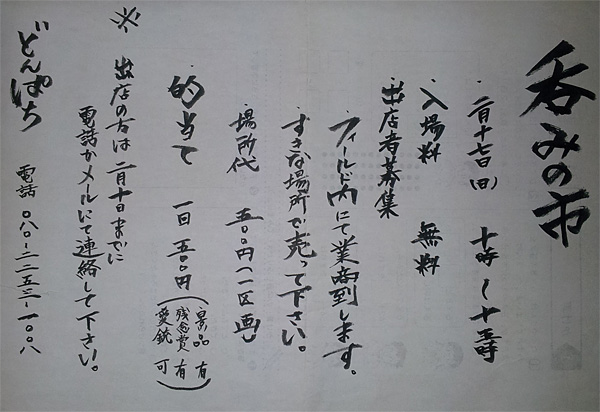 呑みの市
・二月十七日(日) 十時〜十五時
・入場料 無料
・出店者募集
フィールド内にて業商到します。
すきな場所で売って下さい。
・場所代 五〇〇円(一区画)
・的当て 一回 五〇〇円
(景品 有
残念賞 有
愛銃 可)
※ 出店の方は二月十日までに
電話かメールにて連絡して下さい。
どんぱち 電話 〇八〇-二二五三-一〇〇八